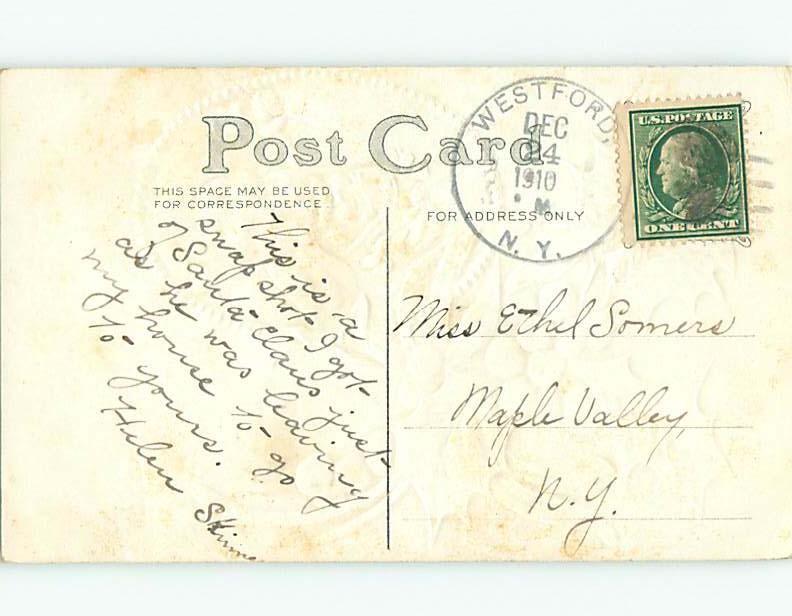 Post Card
THIS SPACE MAY BE USED
FOR CORRESPONDENCE
FOR ADDRESS ONLY
WESTFORD,
DEC
24
1910
M
N. Y.
U.S. POSTAGE
ONE CENT
This is a
snap shot I got
of Santa Claus just
as he was leaving
my house to go
to yours.
Helen
Miss Ethel Somers
Maple Valley,
N.Y.